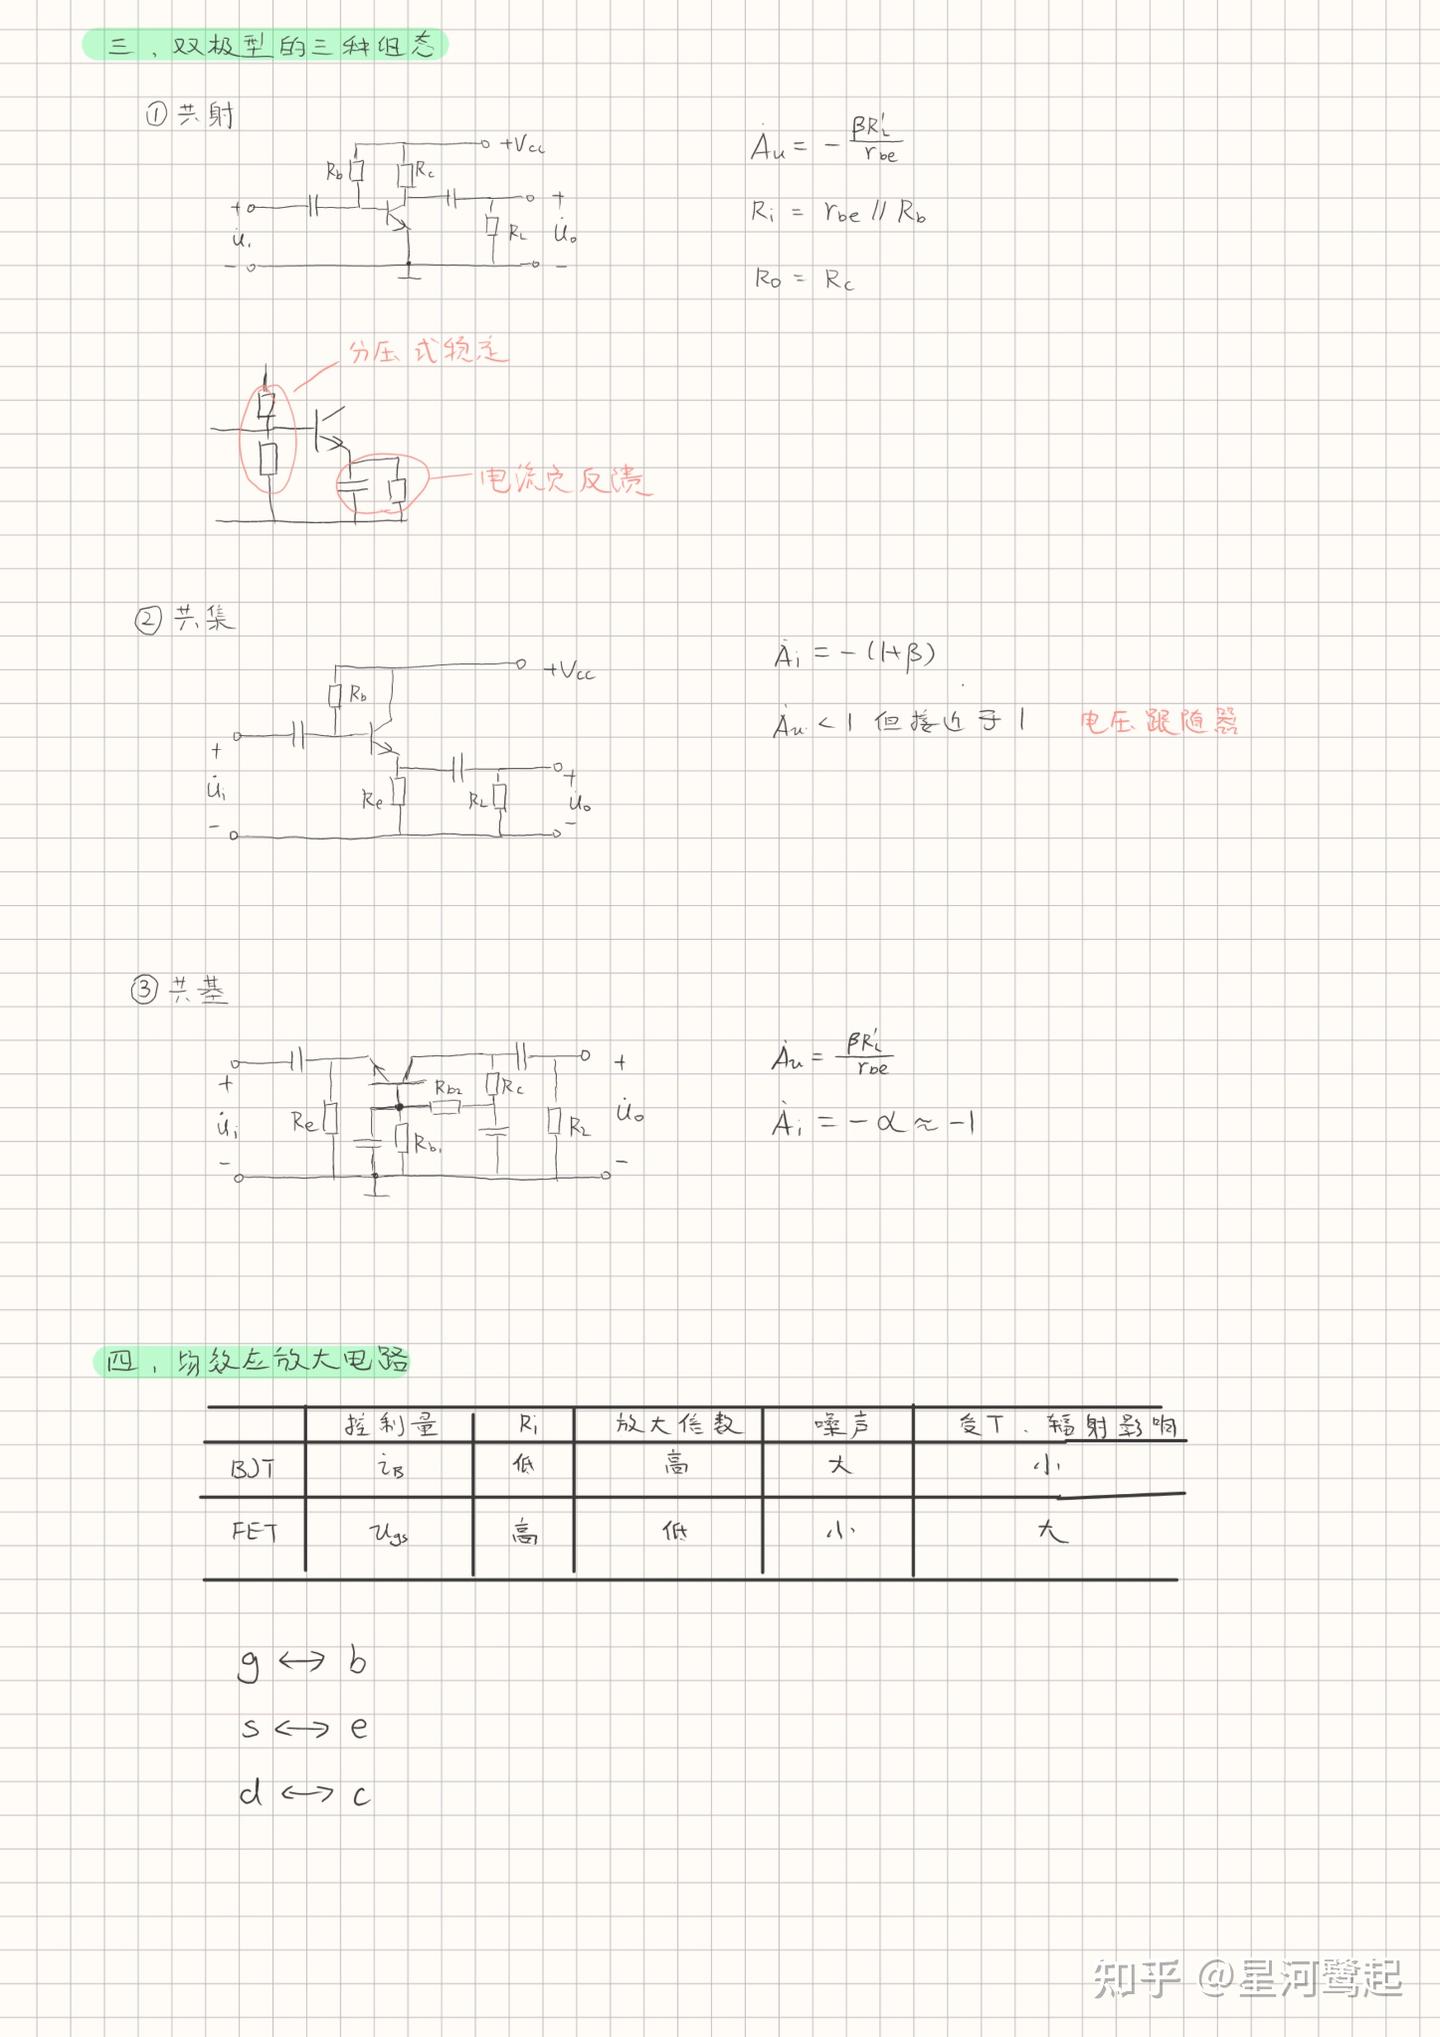 三、双极型的三种组态
①共射
+Vcc
Rb
Rc
+
U̇i
-
RL
+
U̇o
-
Ȧu = - βR'L / rbe
Ri = rbe // Rb
Ro = Rc
分压式稳定
电流负反馈
②共集
+Vcc
Rb
+
U̇i
-
Re
RL
+
U̇o
-
Ȧi = -(1+β)
Ȧu < 1 但接近于1 电压跟随器
③共基
+
U̇i
-
Re
Rb2
Rc
Rb1
RL
+
U̇o
-
Ȧu = βR'L / rbe
Ȧi = -α ≈ -1
四、场效应放大电路
控制量 Ri 放大倍数 噪声 受T、辐射影响
BJT iB 低 高 大 小
FET Ugs 高 低 小 大
g ↔ b
s ↔ e
d ↔ c
知乎 @星河鹭起